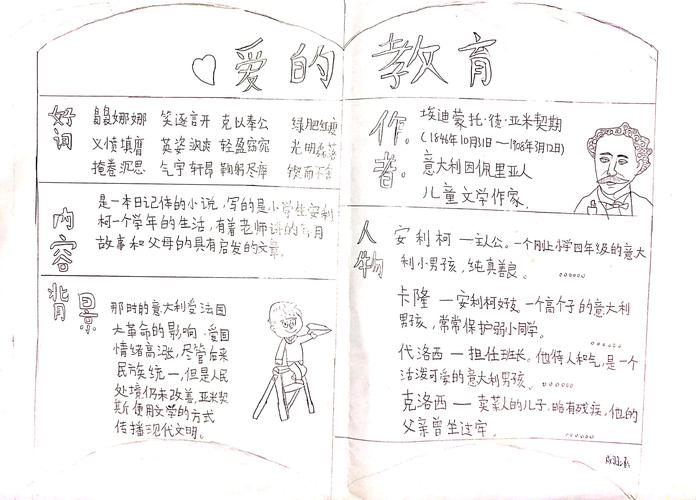 爱的教育
好词
袅袅娜娜 笑逐言开 克以奉公 绿肥红瘦
义愤填膺 英姿飒爽 轻盈窈窕 光明磊落
掩卷沉思 气宇轩昂 鞠躬尽瘁 锲而不舍
内容
是一本日记体的小说,写的是小学生安利
柯一个学年的生活,有着老师讲的每月
故事和父母的具有启发的文章。
背景
那时的意大利受法国
大革命的影响,爱国
情绪高涨,尽管后来
民族统一,但是人民
处境仍未改善,亚米契
斯使用文学的方式
传播现代文明。
作者。
埃迪蒙托·德·亚米契期
(1846年10月31日—1908年3月12日)
意大利因佩里亚人
儿童文学作家.
人物
安利柯—主人公。一个刚上小学四年级的意大
利小男孩,纯真善良。
卡隆—安利柯好友。一个高个子的意大利
男孩,常常保护弱小同学。
代洛西—担任班长。他待人和气,是一个
活泼可爱的意大利男孩。
克洛西—卖菜人的儿子.略有残疾,他的
父亲曾坐过牢.